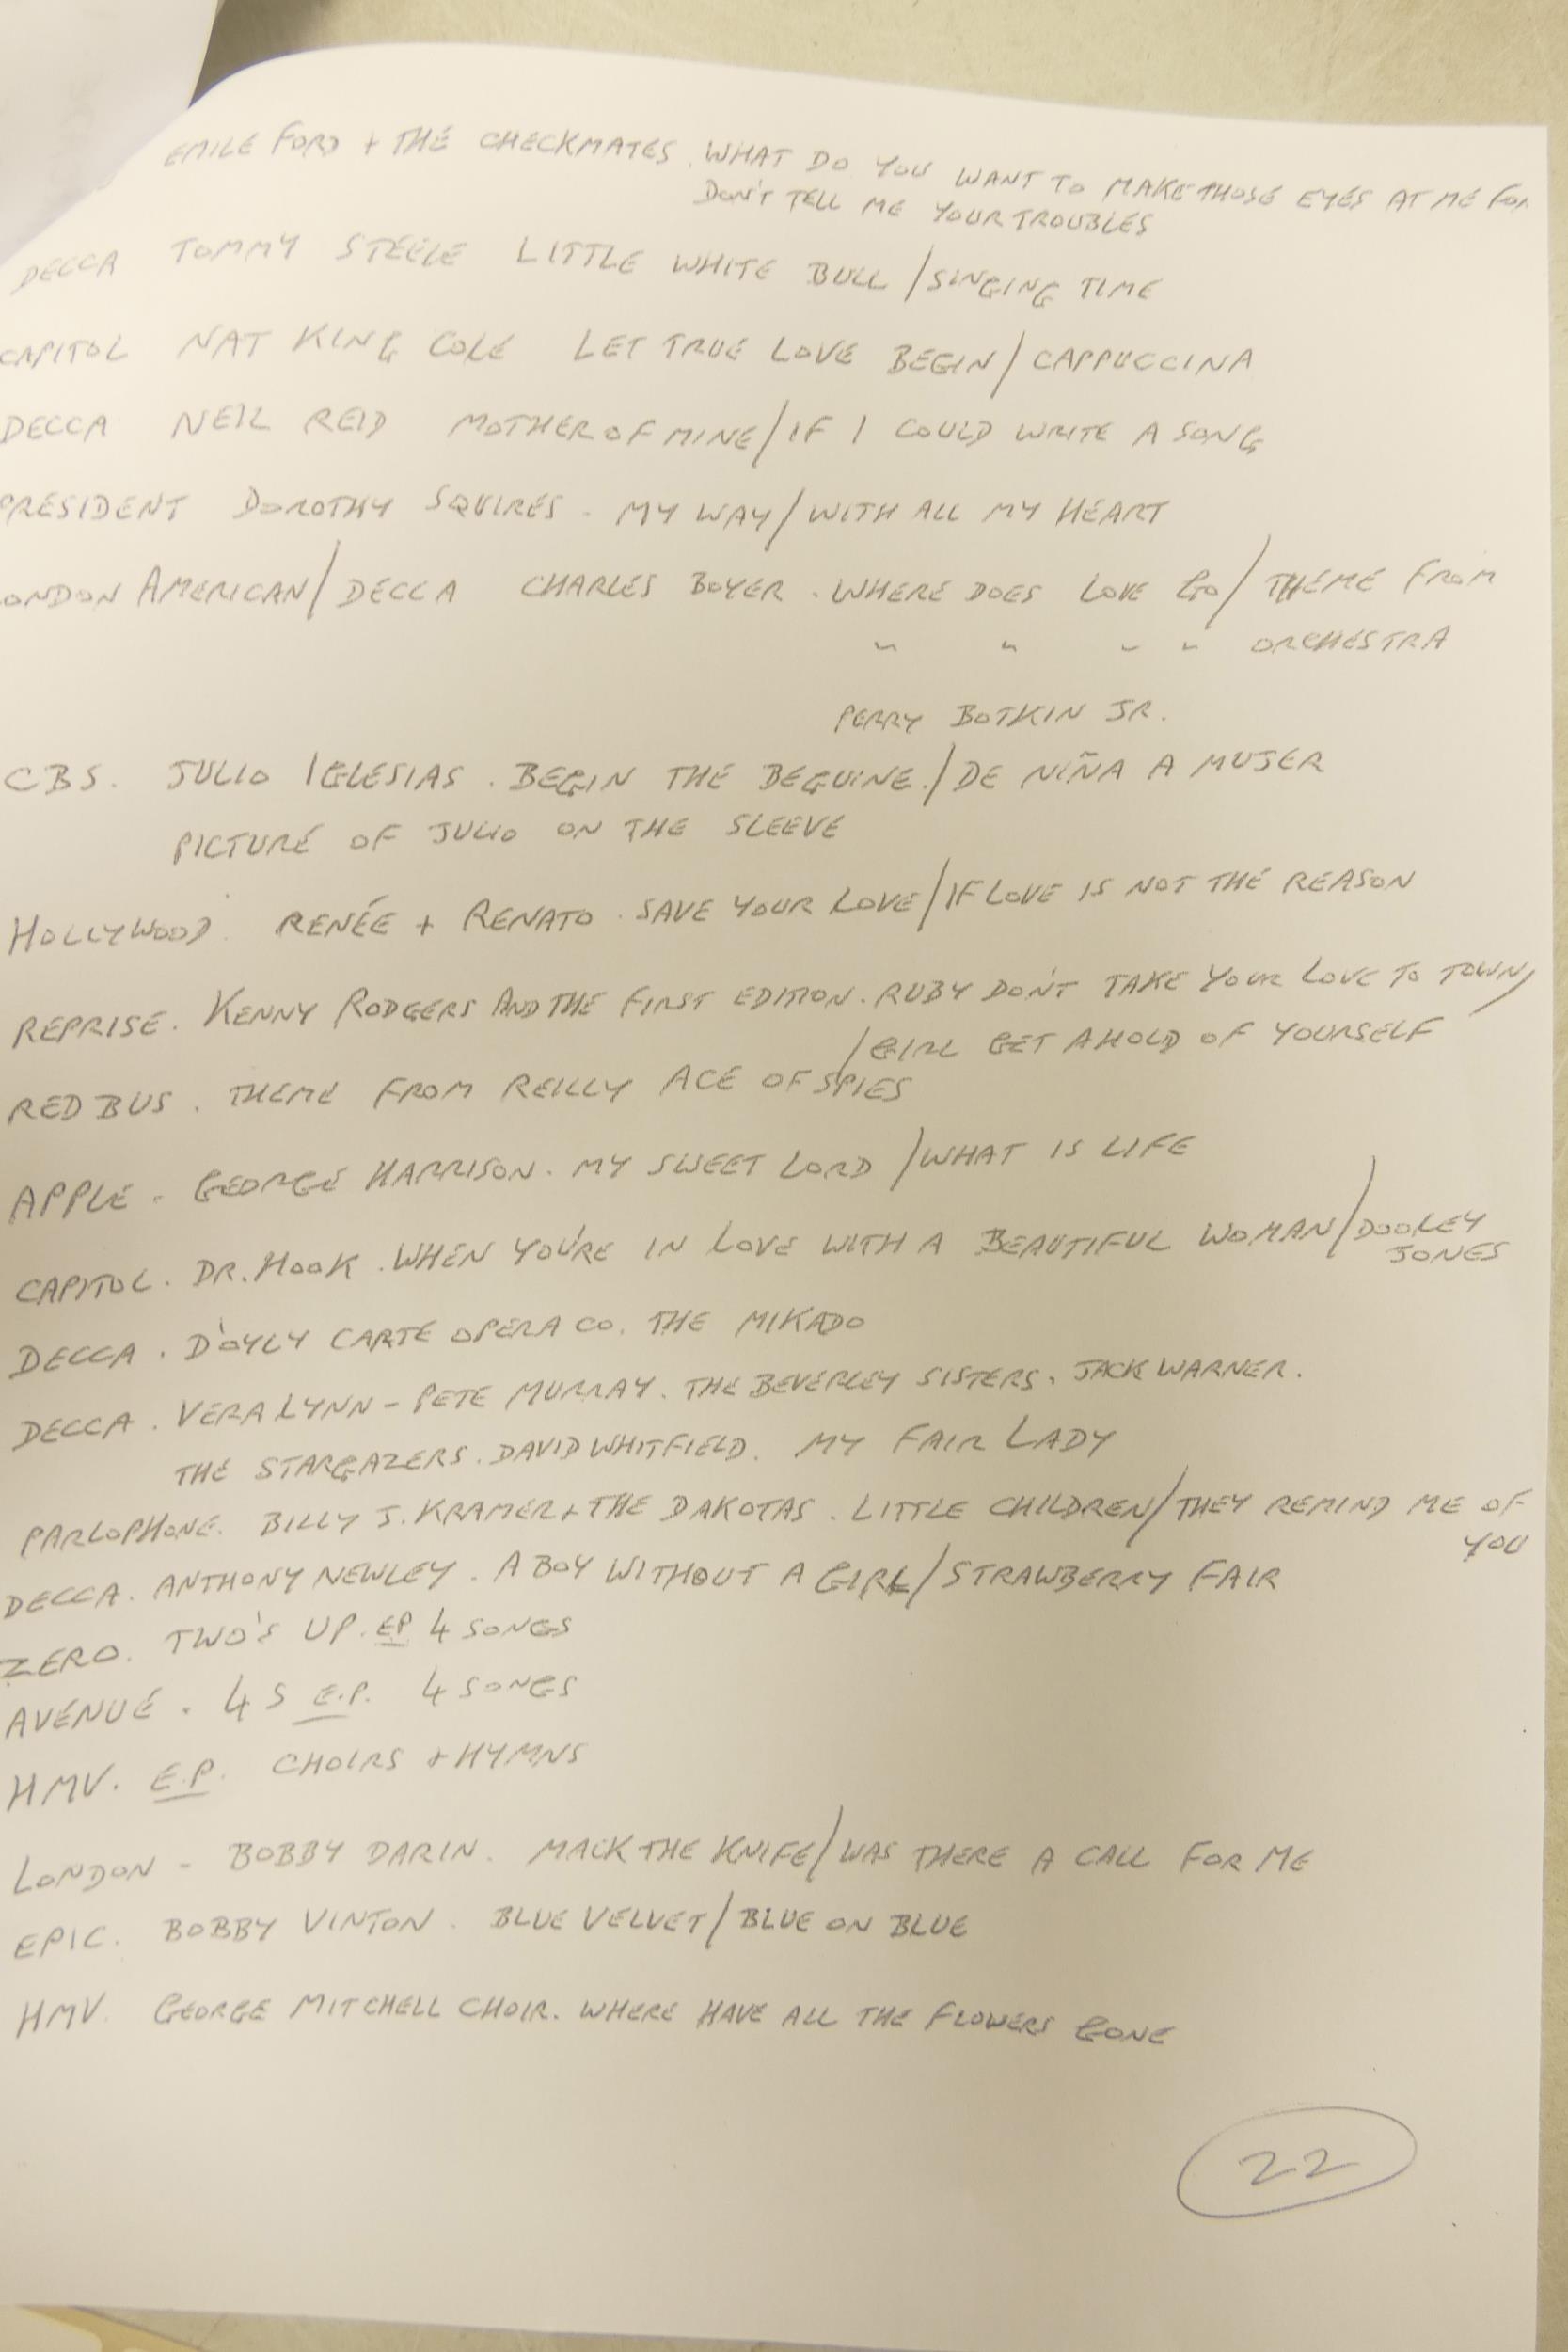 EMILE FORD + THE CHECKMATES. WHAT DO YOU WANT TO MAKE THOSE EYES AT ME FOR
DON'T TELL ME YOUR TROUBLES
DECCA TOMMY STEELE LITTLE WHITE BULL / SINGING TIME
CAPITOL NAT KING COLE LET TRUE LOVE BEGIN / CAPPUCCINA
DECCA NEIL REID MOTHER OF MINE / IF I COULD WRITE A SONG
PRESIDENT DOROTHY SQUIRES - MY WAY / WITH ALL MY HEART
ONDON AMERICAN / DECCA CHARLES BOYER. WHERE DOES LOVE GO / THEME FROM
" " " " ORCHESTRA
PERRY BOTKIN JR.
CBS. JULIO IGLESIAS. BEGIN THE BEGUINE. / DE NIÑA A MUJER
PICTURE OF JULIO ON THE SLEEVE
HOLLYWOOD. RENÉE + RENATO. SAVE YOUR LOVE / IF LOVE IS NOT THE REASON
REPRISE. KENNY RODGERS AND THE FIRST EDITION. RUBY DON'T TAKE YOUR LOVE TO TOWN /
/ GIRL GET A HOLD OF YOURSELF
RED BUS. THEME FROM REILLY ACE OF SPIES
APPLE - GEORGE HARRISON. MY SWEET LORD / WHAT IS LIFE
CAPITOL. DR. HOOK. WHEN YOU'RE IN LOVE WITH A BEAUTIFUL WOMAN / DOOLEY
JONES
DECCA. D'OYLY CARTE OPERA CO. THE MIKADO
DECCA. VERA LYNN - PETE MURRAY. THE BEVERLEY SISTERS. JACK WARNER.
THE STARGAZERS. DAVID WHITFIELD. MY FAIR LADY
PARLOPHONE. BILLY J. KRAMER + THE DAKOTAS. LITTLE CHILDREN / THEY REMIND ME OF
YOU
DECCA. ANTHONY NEWLEY. A BOY WITHOUT A GIRL / STRAWBERRY FAIR
ZERO. TWO'S UP. EP 4 SONGS
AVENUE. 45 E.P. 4 SONGS
HMV. E.P. CHOIRS + HYMNS
LONDON - BOBBY DARIN. MACK THE KNIFE / WAS THERE A CALL FOR ME
EPIC. BOBBY VINTON. BLUE VELVET / BLUE ON BLUE
HMV. GEORGE MITCHELL CHOIR. WHERE HAVE ALL THE FLOWERS GONE
22